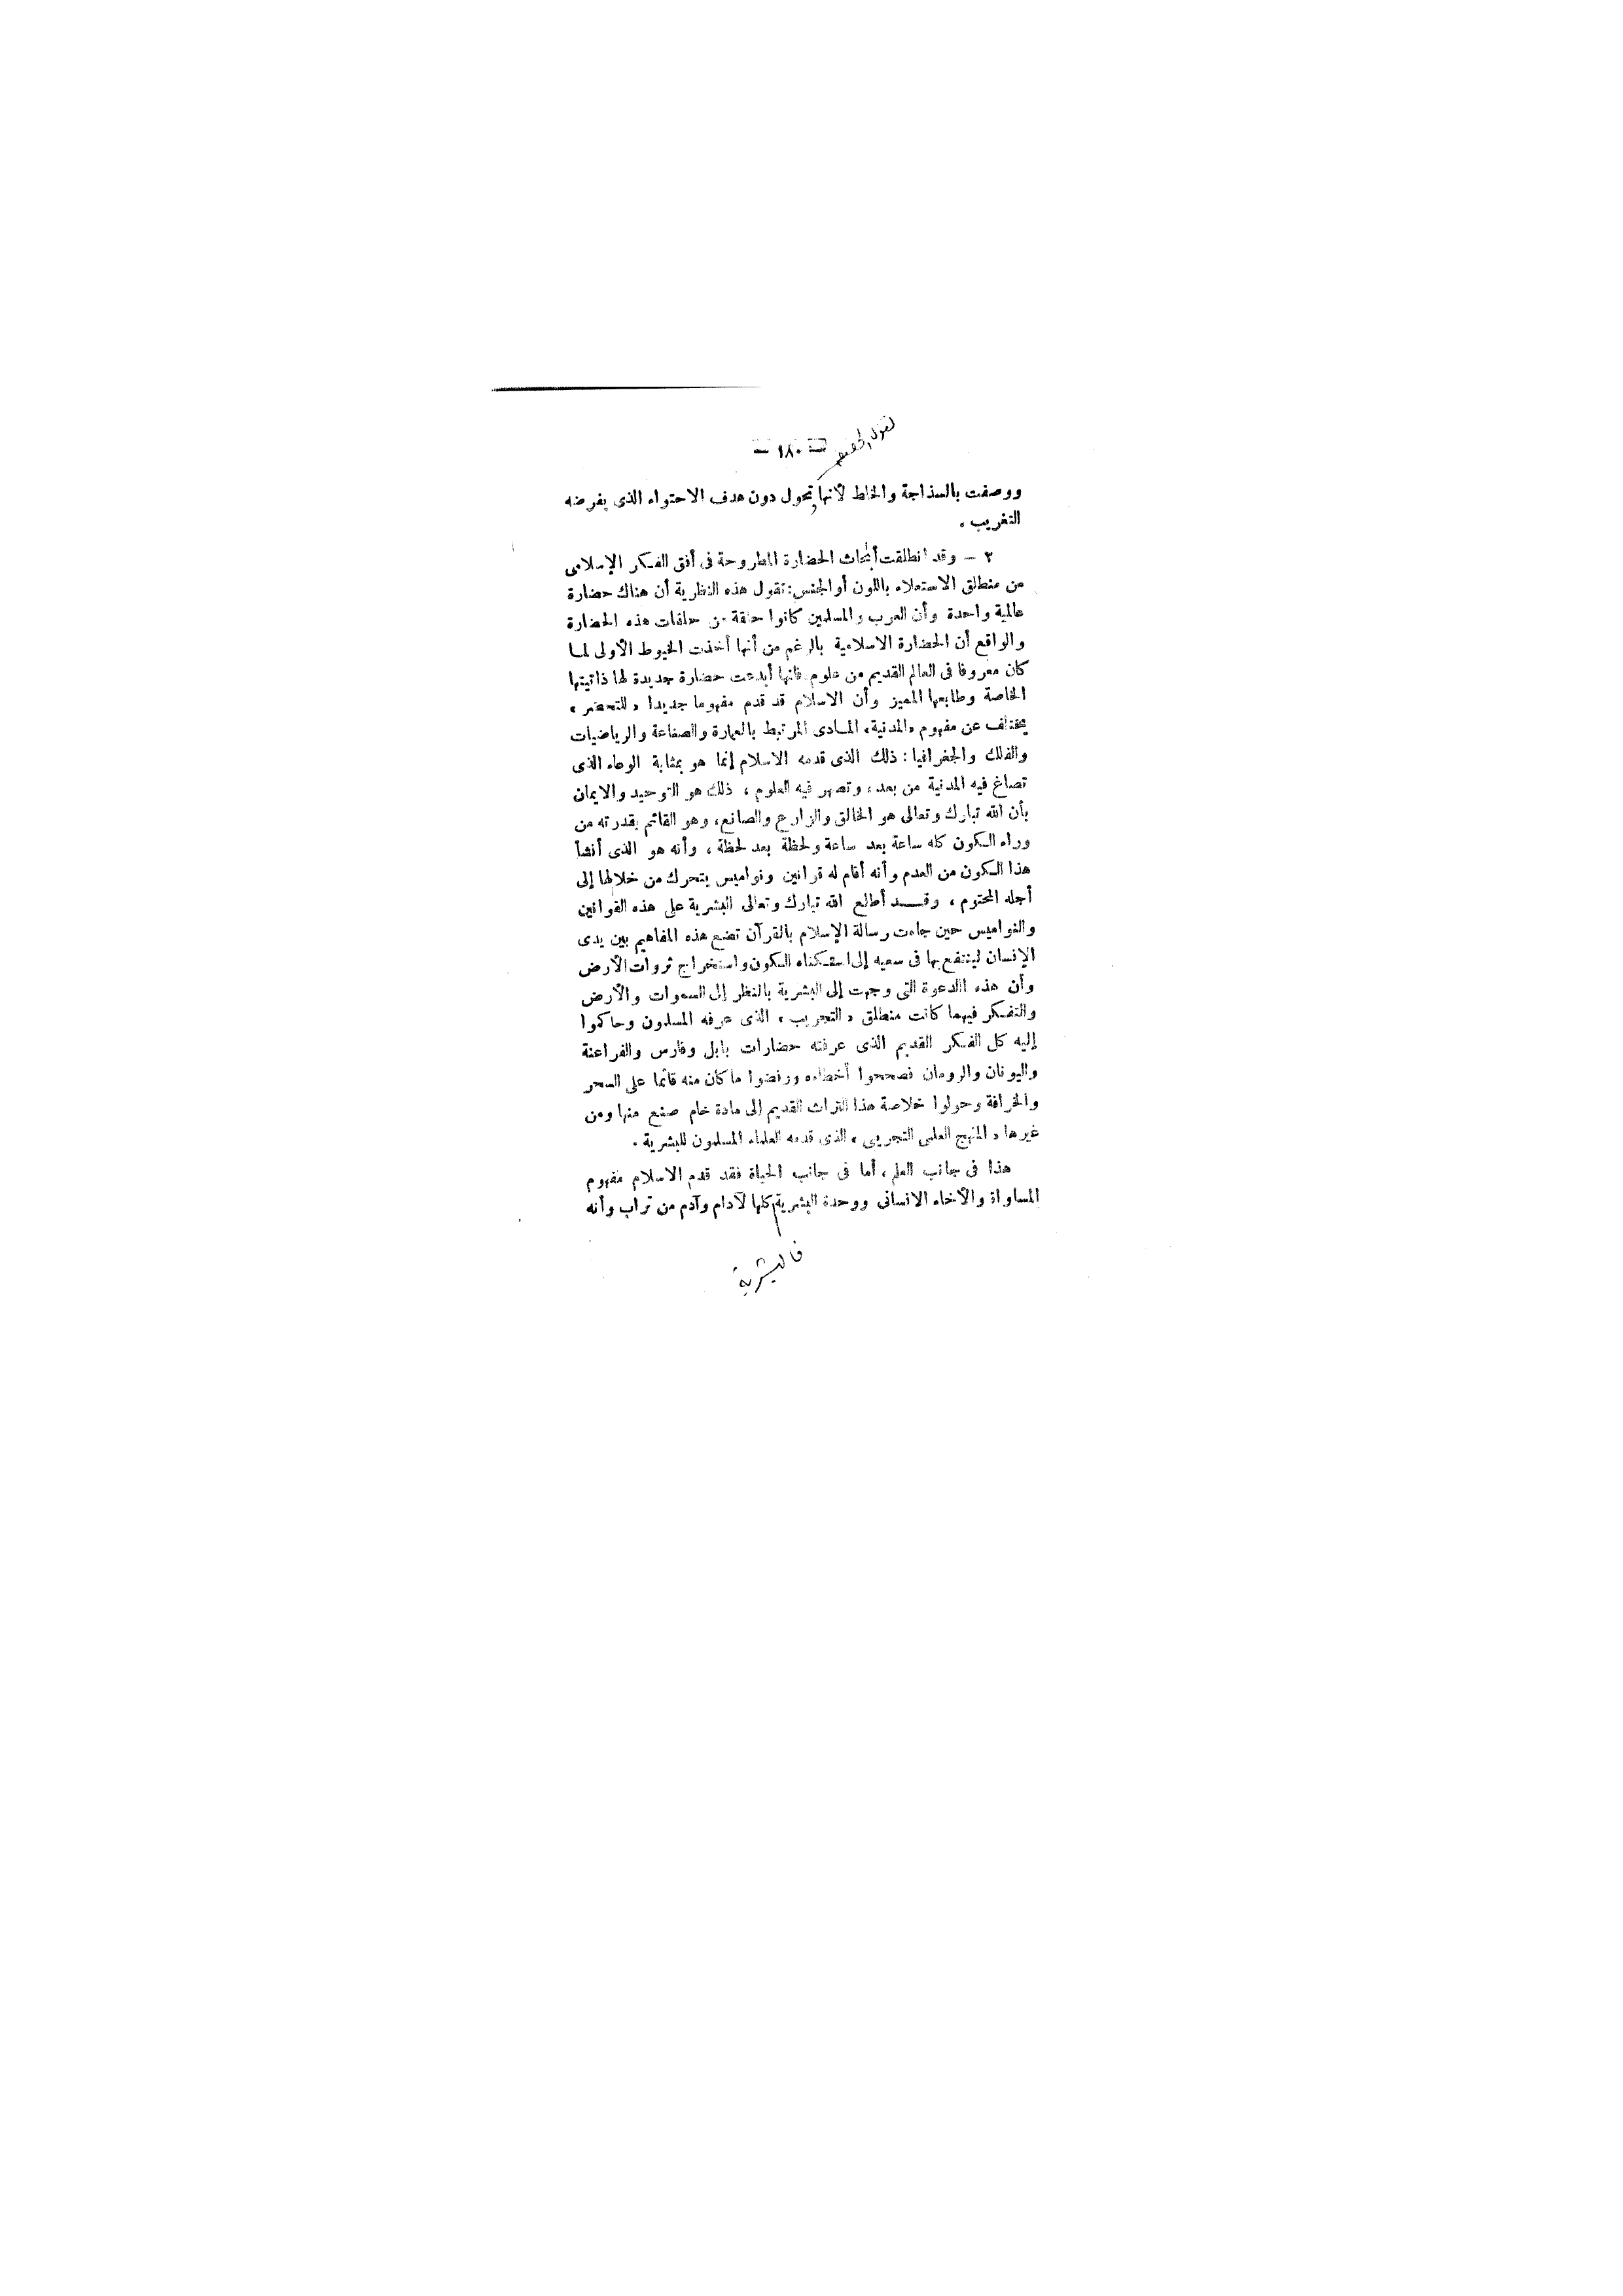 — ١٨٠ —
ووصفت بالسذاجة والخلط لأنها تحول دون هدف الاحتواء الذى يفرضه
التغريب .
٢ — وقد انطلقت أبحاث الحضارة المطروحة فى أفق الفكر الإسلامى
من منطلق الاستعلاء باللون أو الجنس : تقول هذه النظرية أن هناك حضارة
عالمية واحدة وأن العرب والمسلمين كانوا حلقة من حلقات هذه الحضارة
والواقع أن الحضارة الاسلامية بالرغم من أنها أخذت الخيوط الأولى لما
كان معروفا فى العالم القديم من علوم فانها أبدعت حضارة جديدة لها ذاتيتها
الخاصة وطابعها المميز وأن الاسلام قد قدم مفهوما جديدا « للتحضر »
يختلف عن مفهوم «المدنية» المادى المرتبط بالعمارة والصناعة والرياضيات
والفلك والجغرافيا : ذلك الذى قدمه الاسلام إنما هو بمثابة الوعاء الذى
تصاغ فيه المدنية من بعد ، وتصهر فيه العلوم ، ذلك هو التوحيد والايمان
بأن الله تبارك وتعالى هو الخالق والزارع والصانع ، وهو القائم بقدرته من
وراء الكون كله ساعة بعد ساعة ولحظة بعد لحظة ، وأنه هو الذى أنشأ
هذا الكون من العدم وأنه أقام له قوانين ونواميس يتحرك من خلالها إلى
أجله المحتوم ، وقد أطلع الله تبارك وتعالى البشرية على هذه القوانين
والنواميس حين جاءت رسالة الإسلام بالقرآن تضع هذه المفاهيم بين يدى
الإنسان لينتفع بها فى سعيه إلى استكناه الكون واستخراج ثروات الأرض
وأن هذه الدعوة التى وجهت إلى البشرية بالنظر إلى السموات والأرض
والتفكر فيهما كانت منطلق « التجريب » الذى عرفه المسلمون وحاكموا
إليه كل الفكر القديم الذى عرفته حضارات بابل وفارس والفراعنة
واليونان والرومان فصححوا أخطاءه ورفضوا ما كان منه قائما على السحر
والخرافة وحولوا خلاصة هذا التراث القديم إلى مادة خام صنع منها ومن
غيرها « المنهج العلمى التجريبى » الذى قدمه العلماء المسلمون للبشرية .
هذا فى جانب العلم ، أما فى جانب الحياة فقد قدم الاسلام مفهوم
المساواة والأخاء الانسانى ووحدة البشرية كلها لآدام وآدم من تراب وأنه
فالبشرية